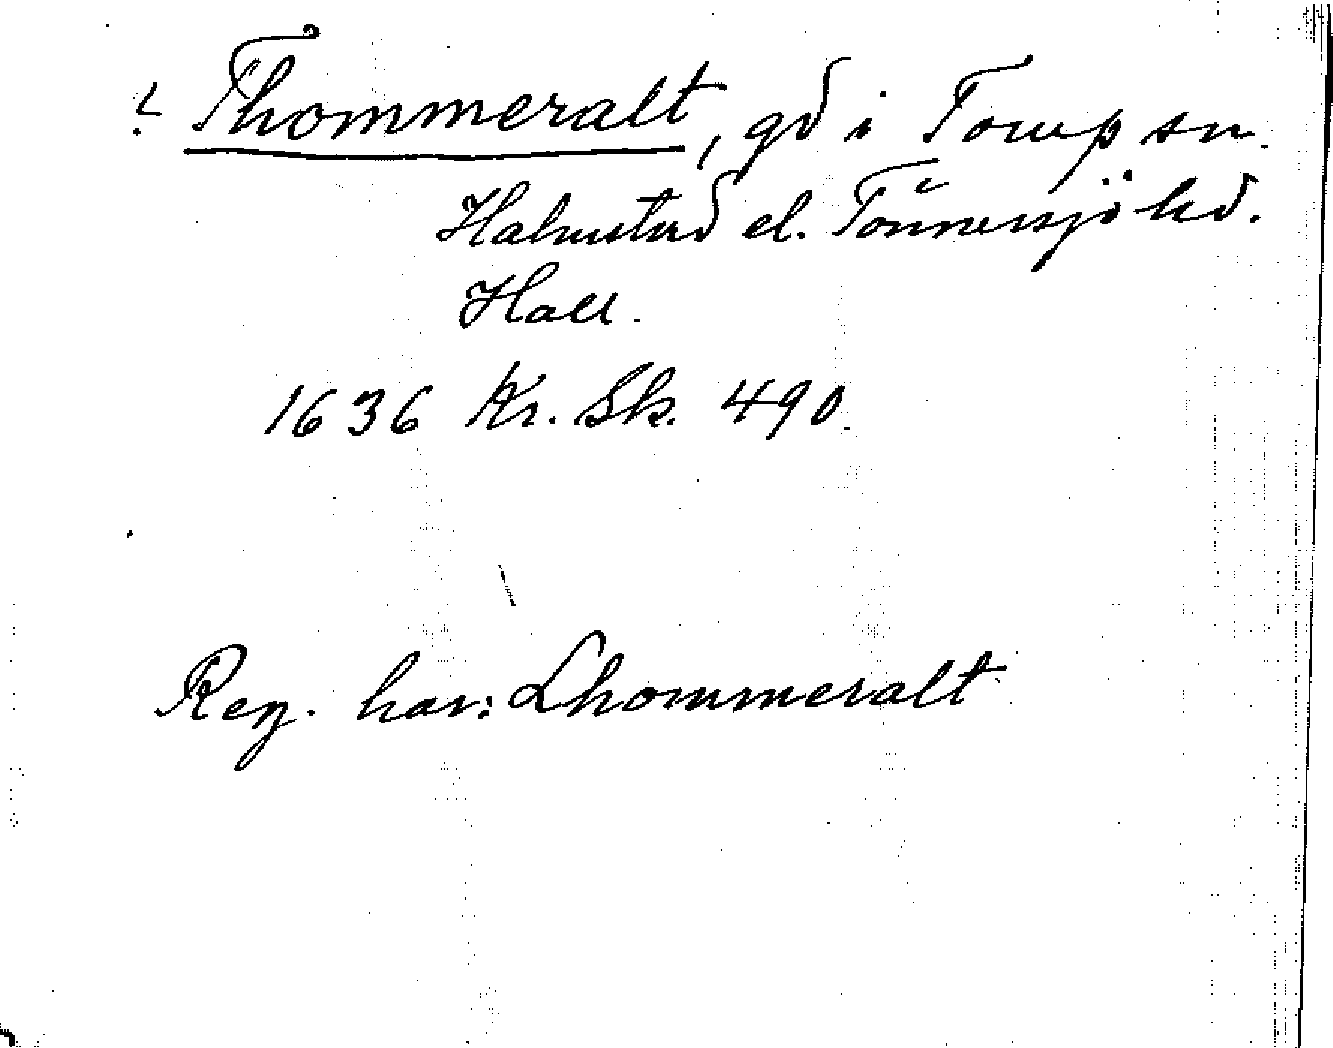 ? Thommeralt, gd i Torup sn.
Halmstad el. Tönnersjö hd.
Hall.
1636 Kr. Sk. 490.
Reg. har: Lhommeralt